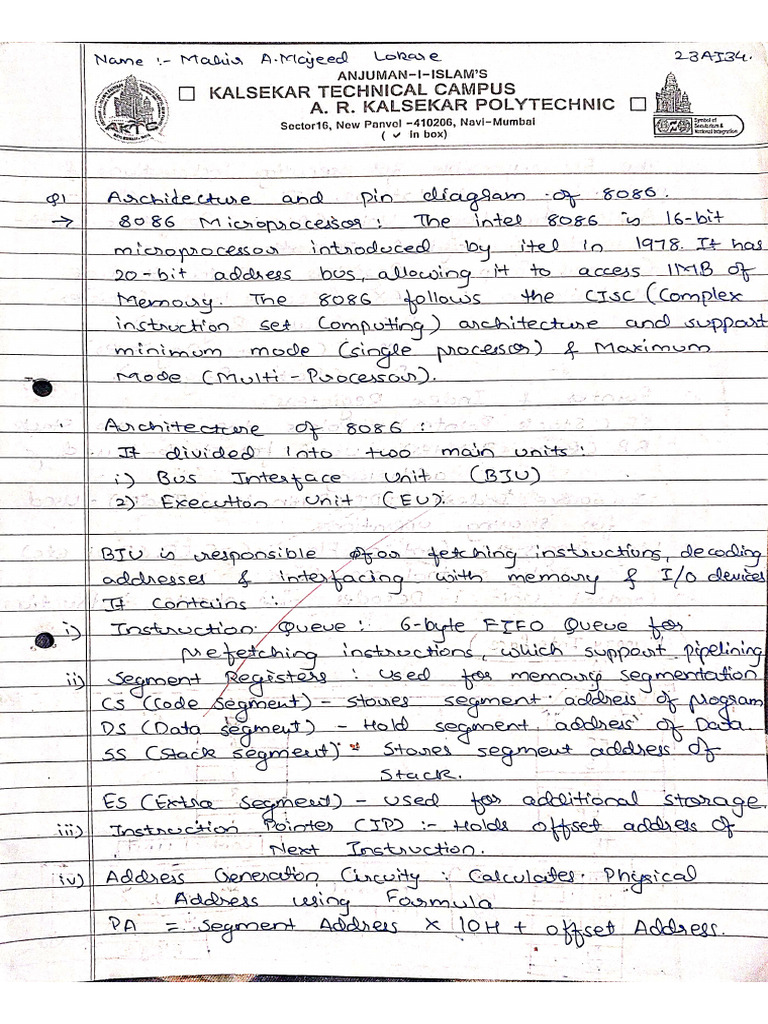 Name :- Mahir A.Majeed Lokare 23AI34.
ANJUMAN-I-ISLAM'S
KALSEKAR TECHNICAL CAMPUS
A. R. KALSEKAR POLYTECHNIC
Sector16, New Panvel -410206, Navi-Mumbai
( ✓ in box)
AKTC
Symbol of Secularism & National Integration
Q1 Architecture and pin diagram of 8086.
→ 8086 Microprocessor: The intel 8086 is 16-bit
microprocessor introduced by itel in 1978. It has
20-bit address bus, allowing it to access 1MB of
Memory. The 8086 follows the CISC (Complex
instruction set Computing) architecture and support
minimum mode (single processor) & Maximum
Mode (Multi-Processor).
Architecture of 8086 :
It divided into two main units :
i) Bus Interface Unit (BIU)
2) Execution Unit (EU).
BIU is responsible for fetching instructions, decoding
addresses & interfacing with memory & I/O devices
It contains :
i) Instruction Queue : 6-byte FIFO Queue for
prefetching instructions, which support pipelining
ii) Segment Registers : Used for memory segmentation
CS (Code Segment) - stores segment address of program
DS (Data segment) - Hold segment address of Data.
SS (Stack segment) - Stores segment address of
Stack.
ES (Extra Segment) - Used for additional storage.
iii) Instruction Pointer (IP) :- Holds offset address of
Next Instruction.
iv) Address Generation Circuity : Calculates Physical
Address using Formula
PA = Segment Address × 10H + offset Address.